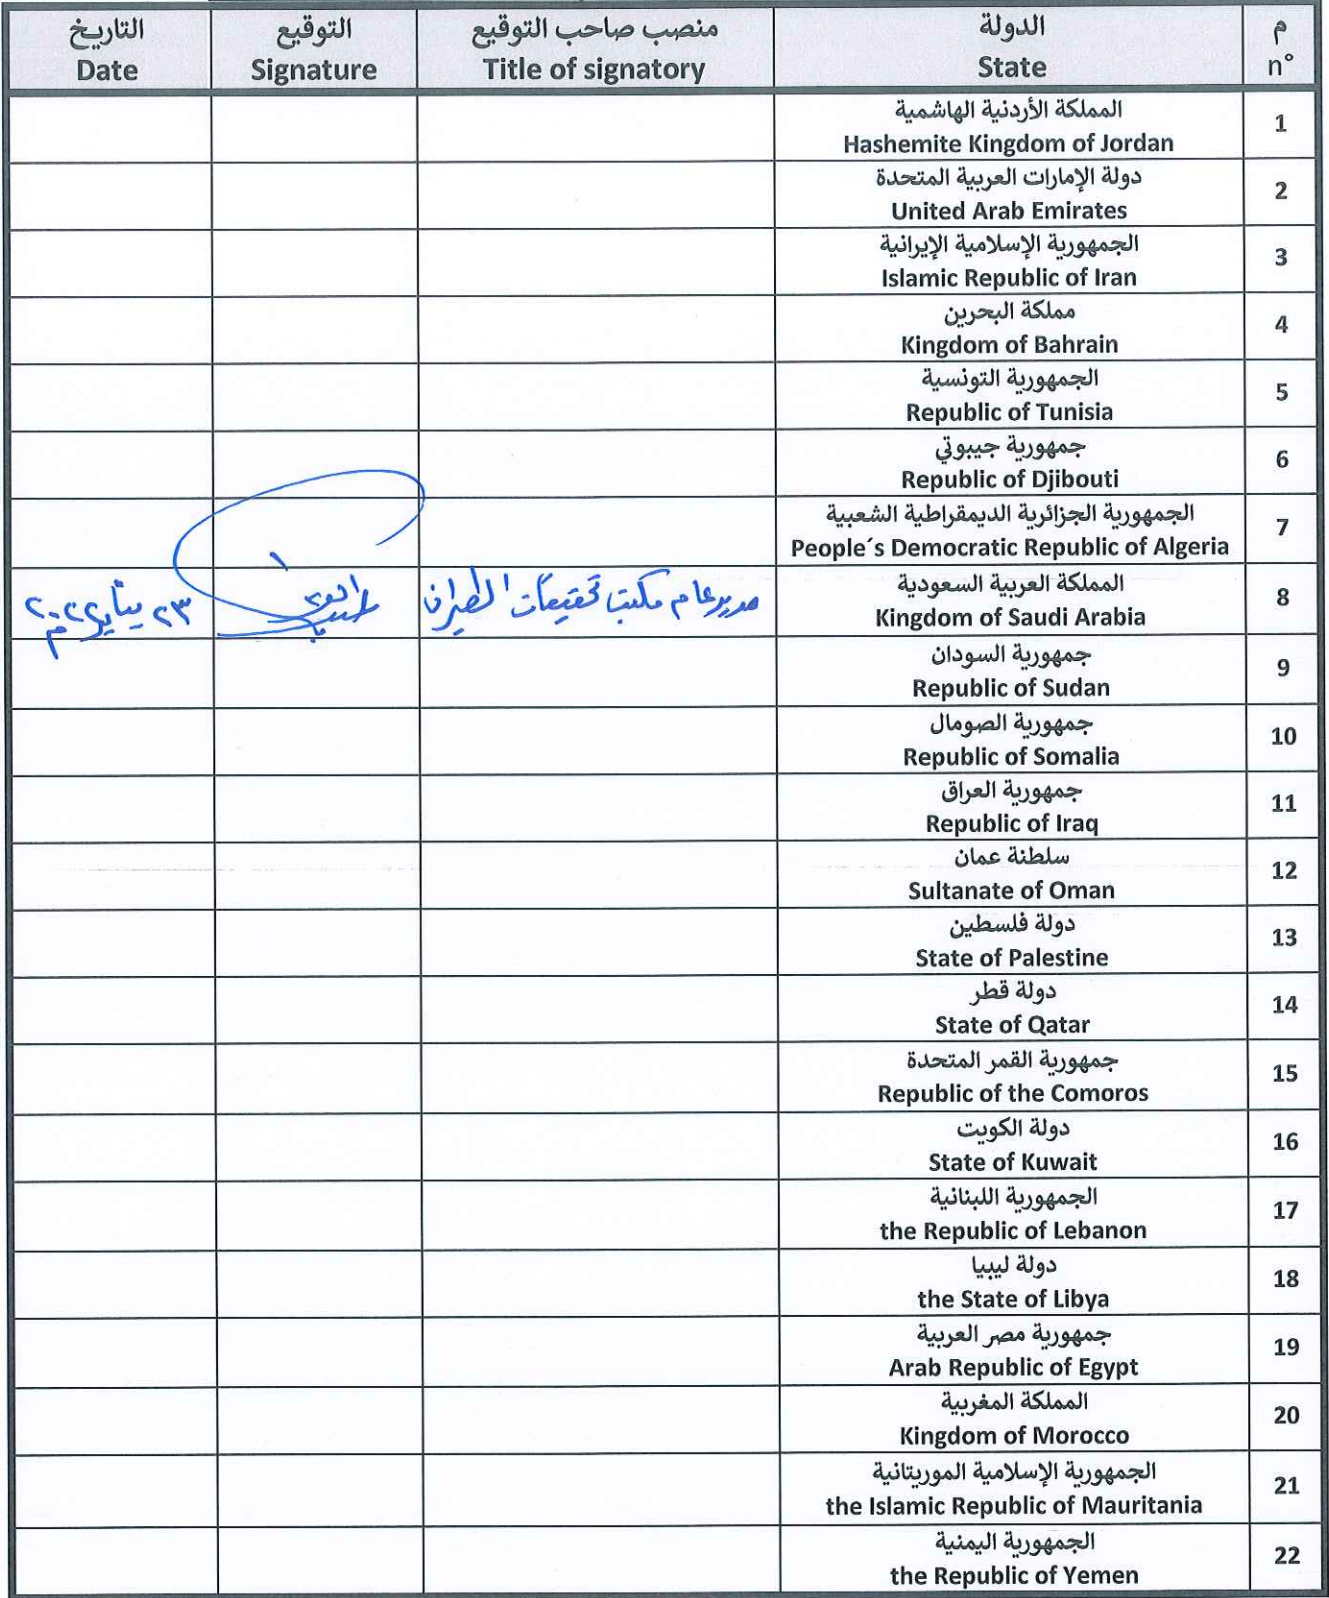 م الدولة منصب صاحب التوقيع التوقيع التاريخ
n° State Title of signatory Signature Date
1 المملكة الأردنية الهاشمية
Hashemite Kingdom of Jordan
2 دولة الإمارات العربية المتحدة
United Arab Emirates
3 الجمهورية الإسلامية الإيرانية
Islamic Republic of Iran
4 مملكة البحرين
Kingdom of Bahrain
5 الجمهورية التونسية
Republic of Tunisia
6 جمهورية جيبوتي
Republic of Djibouti
7 الجمهورية الجزائرية الديمقراطية الشعبية
People´s Democratic Republic of Algeria
8 المملكة العربية السعودية مدير عام مكتب تحقيقات الطيران ٢٣ يناير ٢٠٢٢م
Kingdom of Saudi Arabia
9 جمهورية السودان
Republic of Sudan
10 جمهورية الصومال
Republic of Somalia
11 جمهورية العراق
Republic of Iraq
12 سلطنة عمان
Sultanate of Oman
13 دولة فلسطين
State of Palestine
14 دولة قطر
State of Qatar
15 جمهورية القمر المتحدة
Republic of the Comoros
16 دولة الكويت
State of Kuwait
17 الجمهورية اللبنانية
the Republic of Lebanon
18 دولة ليبيا
the State of Libya
19 جمهورية مصر العربية
Arab Republic of Egypt
20 المملكة المغربية
Kingdom of Morocco
21 الجمهورية الإسلامية الموريتانية
the Islamic Republic of Mauritania
22 الجمهورية اليمنية
the Republic of Yemen